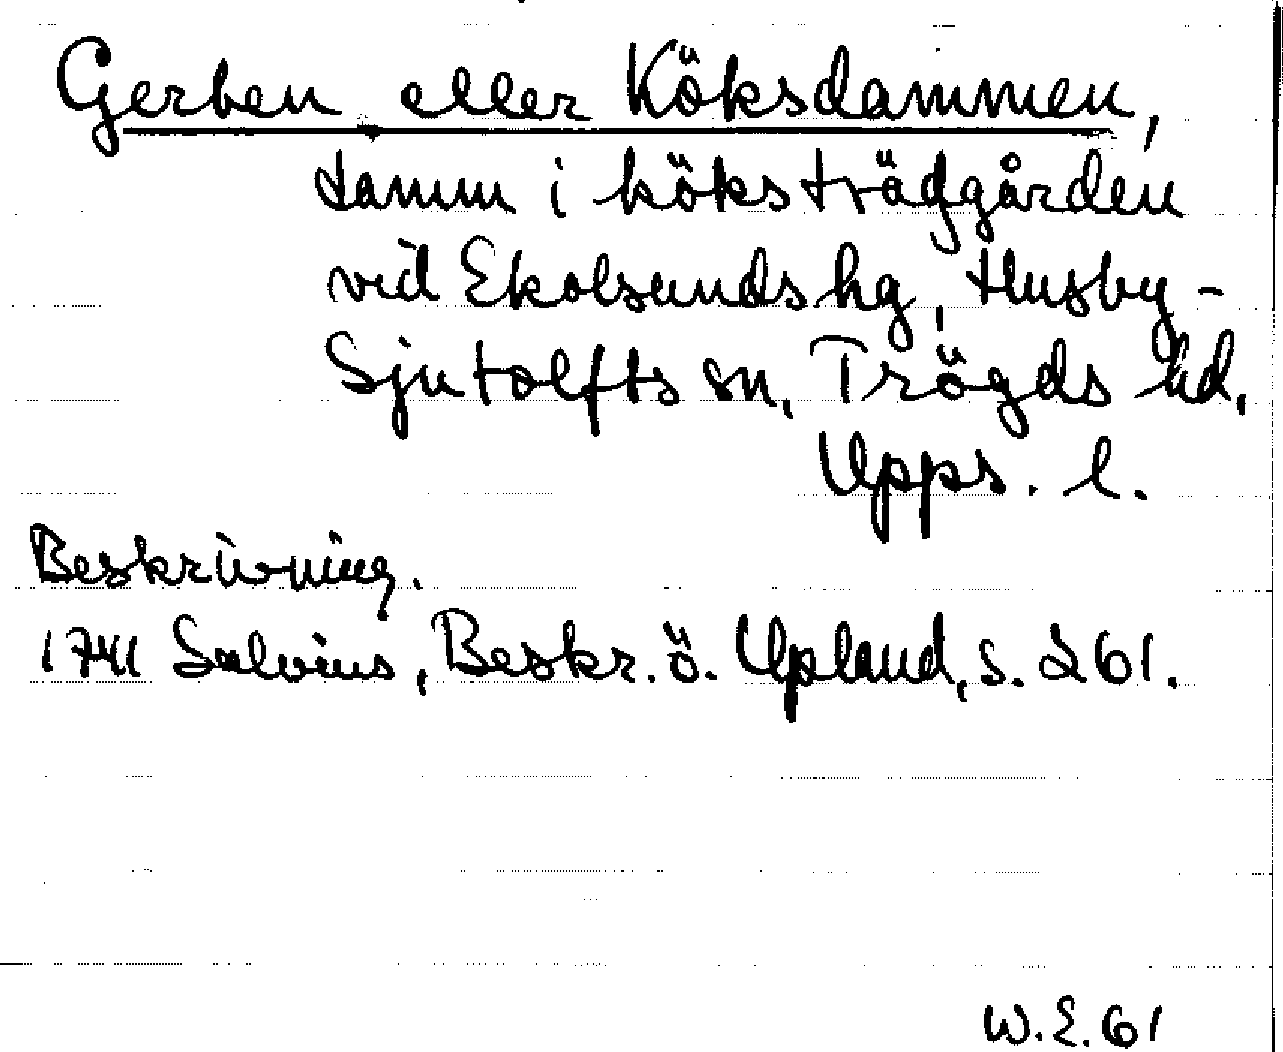 Gerben eller Köksdammen,
damm i köksträdgården
vid Ekolsunds hg, Husby-
Sjutolfts sn, Trögds hd,
Upps. l.
Beskrivning.
1741 Salvius, Beskr. ö. Upland, s. 261.
W.E. 61